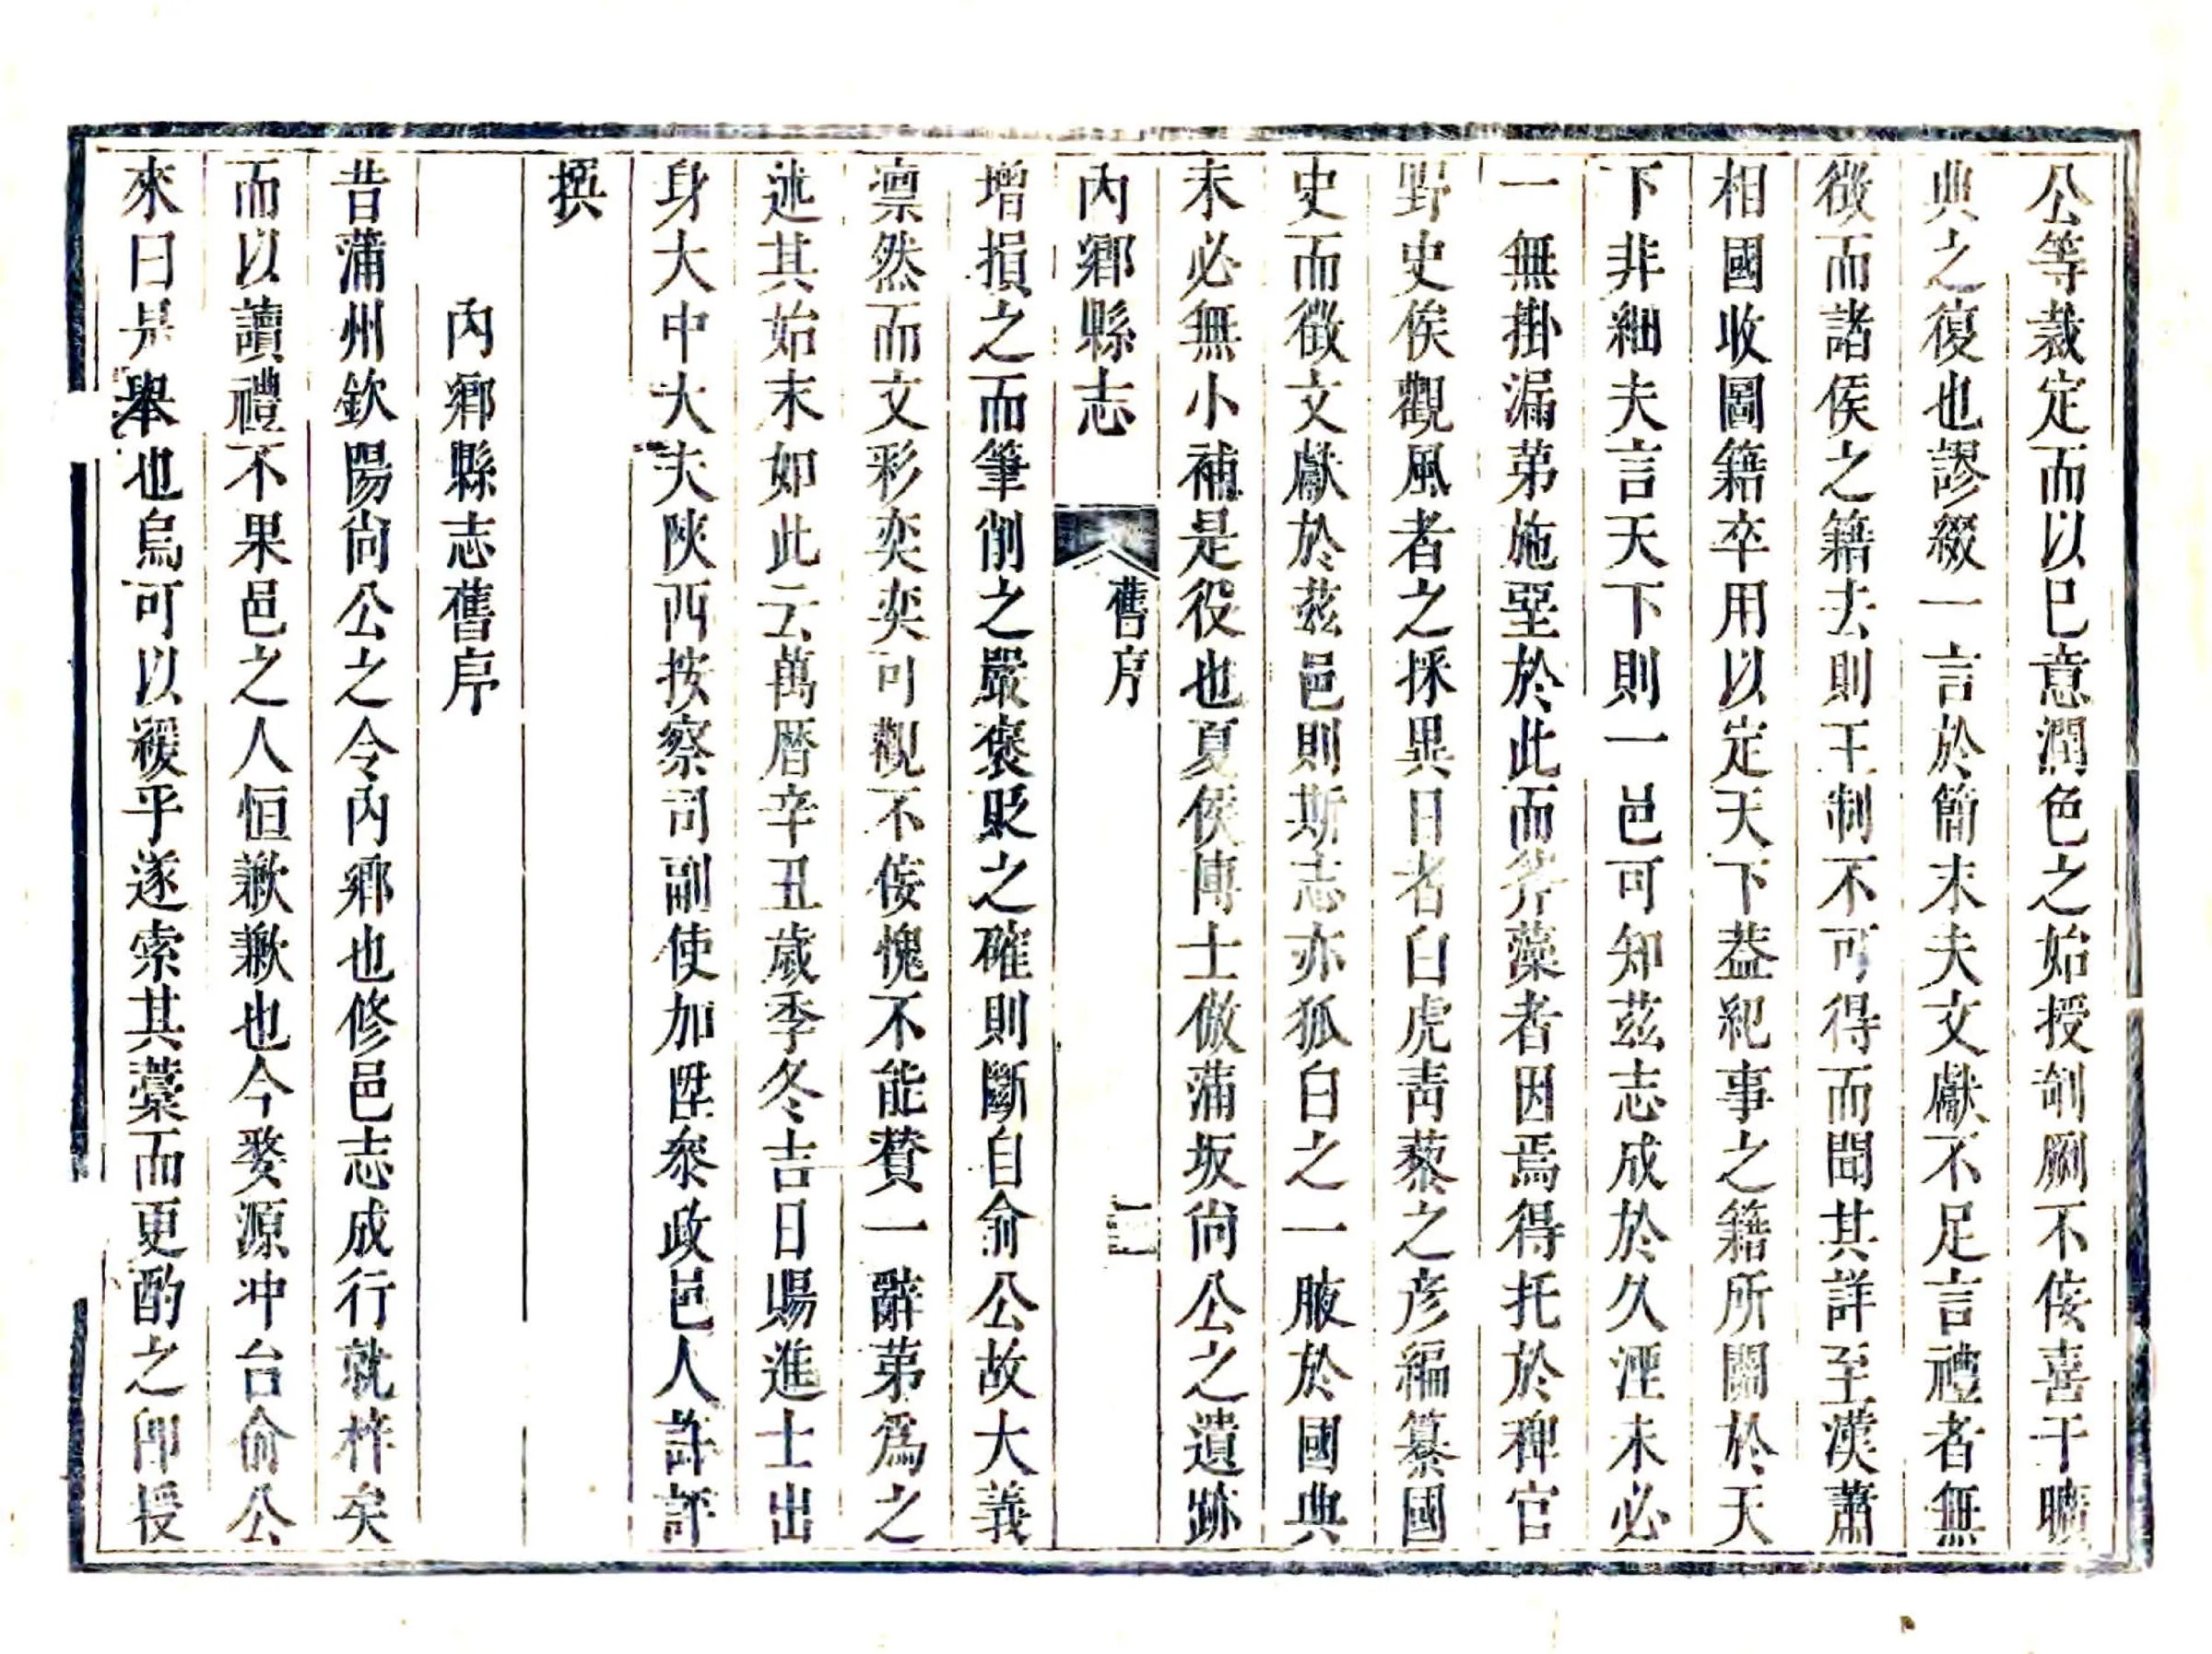 公等裁定而以巳意潤色之始授剞劂不佞喜干曠
典之復也謬綴一言於簡末夫文獻不足言禮者無
徵而諸侯之籍去則王制不可得而聞其詳至漢蕭
相國收圖籍卒用以定天下葢紀事之籍所關於天
下非細夫言天下則一邑可知茲志成於久湮未必
一無掛漏第施堊於此而斧藻者因焉得托於稗官
野史俟觀風者之採異日者白虎靑藜之彦編纂國
史而徵文獻於茲邑則斯志亦狐白之一腋於國典
未必無小補是役也夏侯博士倣蒲坂尙公之遺跡
內鄉縣志
舊序
二
增損之而筆削之嚴褒貶之確則斷自俞公故大義
凛然而文彩奕奕可觀不佞愧不能賛一辭第爲之
述其始末如此云萬曆辛丑歲季冬吉日賜進士出
身大中大夫陝西按察司副使加陞叅政邑人許評
撰
內鄉縣志舊序
昔蒲州欽陽尙公之令內鄉也修邑志成行就梓矣
而以讀禮不果邑之人恒歉歉也今婺源冲台俞公
來曰是舉也烏可以緩乎遂索其藁而更酌之卽授